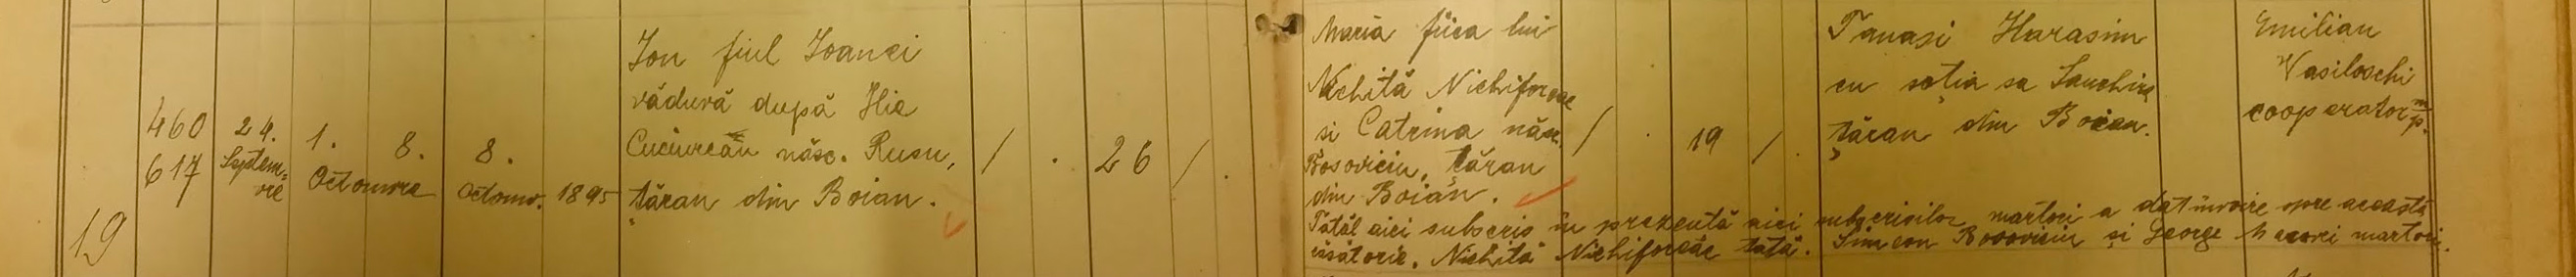 19
460
617
24.
Septem=
vrie
1.
8.
Octomvre
8.
Octomv. 1895
Ion fiul Ioanei
văduvă după Ilie
Cuciurean născ. Rusu,
țăran din Boian.
/ . 26 / .
Maria fiica lui
Nichită Nichiforeac
si Catrina născ.
Bosoviciu, țăran
din Boian.
/ . 19 / .
Tanasi Harasim
cu soția sa
țăran din Boian.
Emilian
Vasiloschi
cooperator m/p.
Tatăl aici subscris în prezentă aici subscrisilor martori a dat învoire spre aceasta
căsătorie. Nichită Nichiforeac tată. Simeon Bosoviciu și George martori.